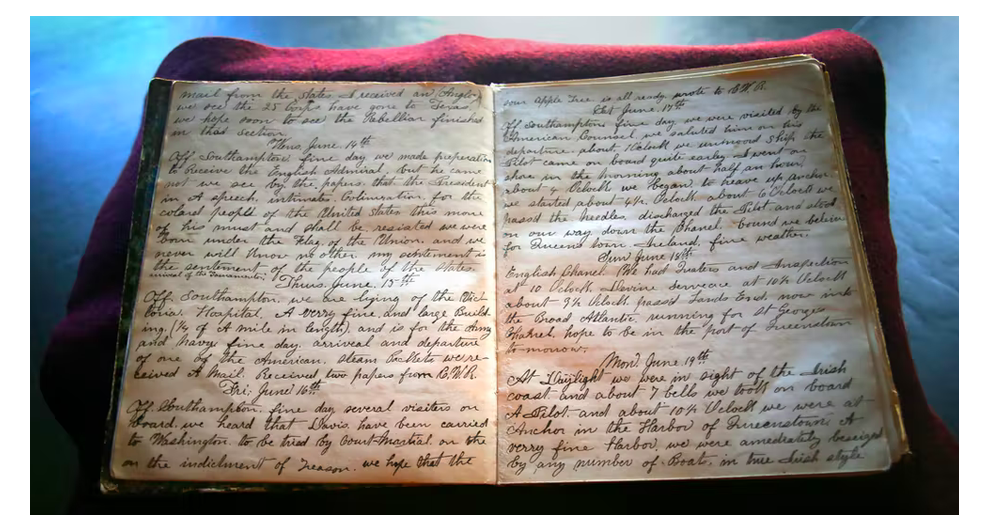 mail from the States I received an (Anglo)
we see the 25 Corps have gone to Texas,
we hope soon to see the Rebellian finished
in that section.
Thus, June, 14th
Off Southampton, fine day we made preperation
to Receive the English Admiral, but he came
not we see by the papers that the President
in A speech, intimates Colinization for the
colard people of the United States this move
of his must and shall be, resisted we were
born under the Flag of the Union, and we
never will know no other my sentement is
the sentement of the people of the States
arrival of the Sacramento
Thurs, June, 15th
Off Southampton, we are lying of the Vic
toria, Hospital, A verry fine, and large Build-
ing, (¼ of A mile in length), and is for the Army
and Navy, fine day, arrival and departure
of one of the American, Steam Packets we re-
ceived A Mail, Received two papers from C.W.R.
Fri, June 16th
Off Southampton, fine day several visiters on
board, we heard that Davis have been carried
to Washington, to be tried by Court Martial, on the
on the indictment of Treason, we hope that the
sour Apple Tree is all ready wrote to B.W.R.
Sat June, 17th
Off Southampton, fine day we were visited by the
American Counsel, we saluted him on his
departure, about 1 Oclock we unmoord Ship, the
Pilot came on board quite earley I went on
shore in the morning about half an hour,
about 4 Oclock we began to heave up Anchor
we started about 4½ Oclock, about 6 Oclock we
passd the Needles, discharged the Pilot and stood
on our way down the Chanel, bound we believe
for Queens town Ireland, fine weather,
Sun June 18th
English Chanel. We had Quters and Inspection
at 10 Oclock, Devine Serveare at 10½ Oclock
about 3½ Oclock, pass'd Lands End, now into
the Broad Atlantic, running for St Georges
Chanel, hope to be in the port of Queenstown
to morrow.
Mon, June 19th
At Daylight we were in sight of the Irish
coast, and about 7 bells we took on board
A Pilot, and about 10½ Oclock we were at
Anchor in the Harbor of Queenstown, A
verry fine Harbor, we were amediately besieged
by any number of Boat, in true Irish style